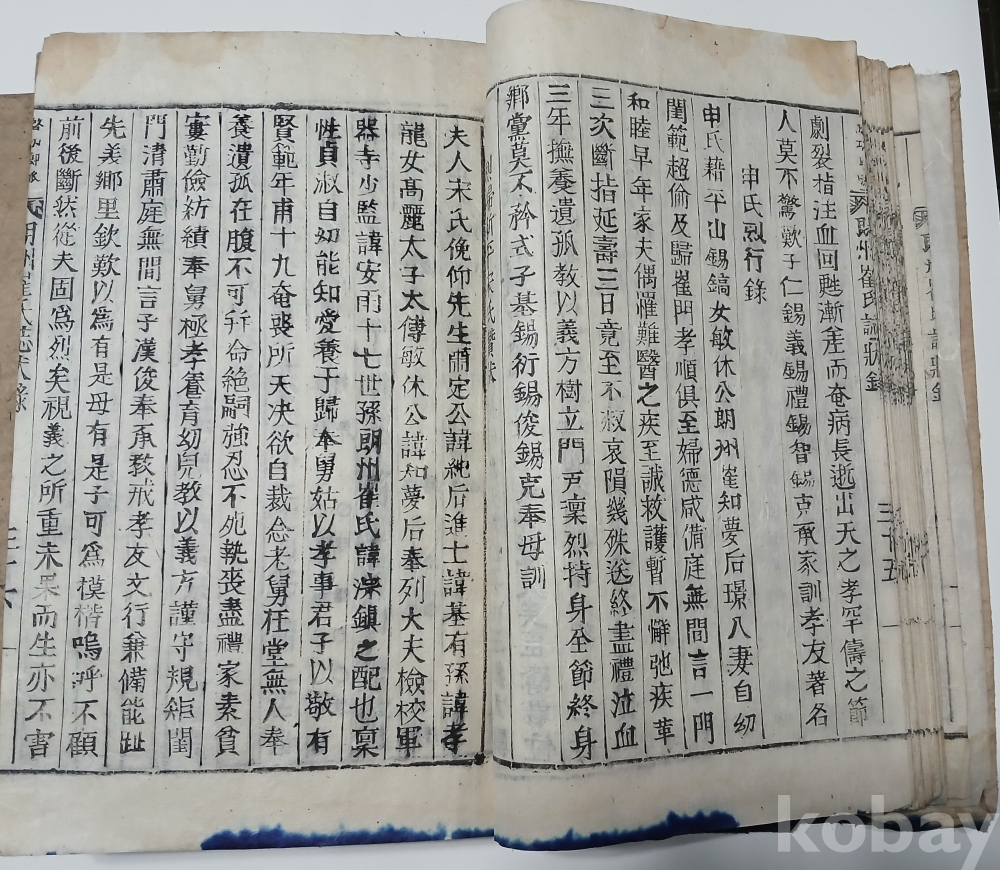 劇裂指注血回甦漸差而奄病長逝出天之孝罕儔之節
人莫不驚歎子仁錫義錫禮錫智錫克承家訓孝友著名
申氏烈行錄
申氏藉平山錫鎬女敏休公朗州崔知夢后璟八妻自幼
閨範超倫及歸崔門孝順俱至婦德咸備庭無間言一門
和睦早年家夫偶罹難醫之疾至誠救護暫不懈弛疾革
三次斷指延壽三日竟至不淑哀隕幾殊送終盡禮泣血
三年撫養遺孤教以義方樹立門戶凛烈持身至節終身
鄕黨莫不矜式子基錫衍錫俊錫克奉母訓
夫人宋氏俛仰先生肅定公諱純后進士諱基有孫諱孝
龍女高麗太子太傅敏休公諱知夢后奉列大夫檢校軍
器寺少監諱安雨十七世孫朗州崔氏諱深鎭之配也稟
性貞淑自幼能知愛養于歸奉舅姑以孝事君子以敬有
賢範年甫十九奄喪所天决欲自裁念老舅在堂無人奉
養遺孤在腹不可弁命絶嗣強忍不死執喪盡禮家素貧
寠勤儉紡績奉舅極孝養育幼兒教以義方謹守規矩閨
門清肅庭無間言子漢俊奉承教戒孝友文行兼備能趾
先美鄕里欽歎以爲有是母有是子可爲模楷嗚呼不顧
前後斷然從夫固爲烈矣視義之所重未果而生亦不害
朗州崔氏誌狀錄
三十五
kobay